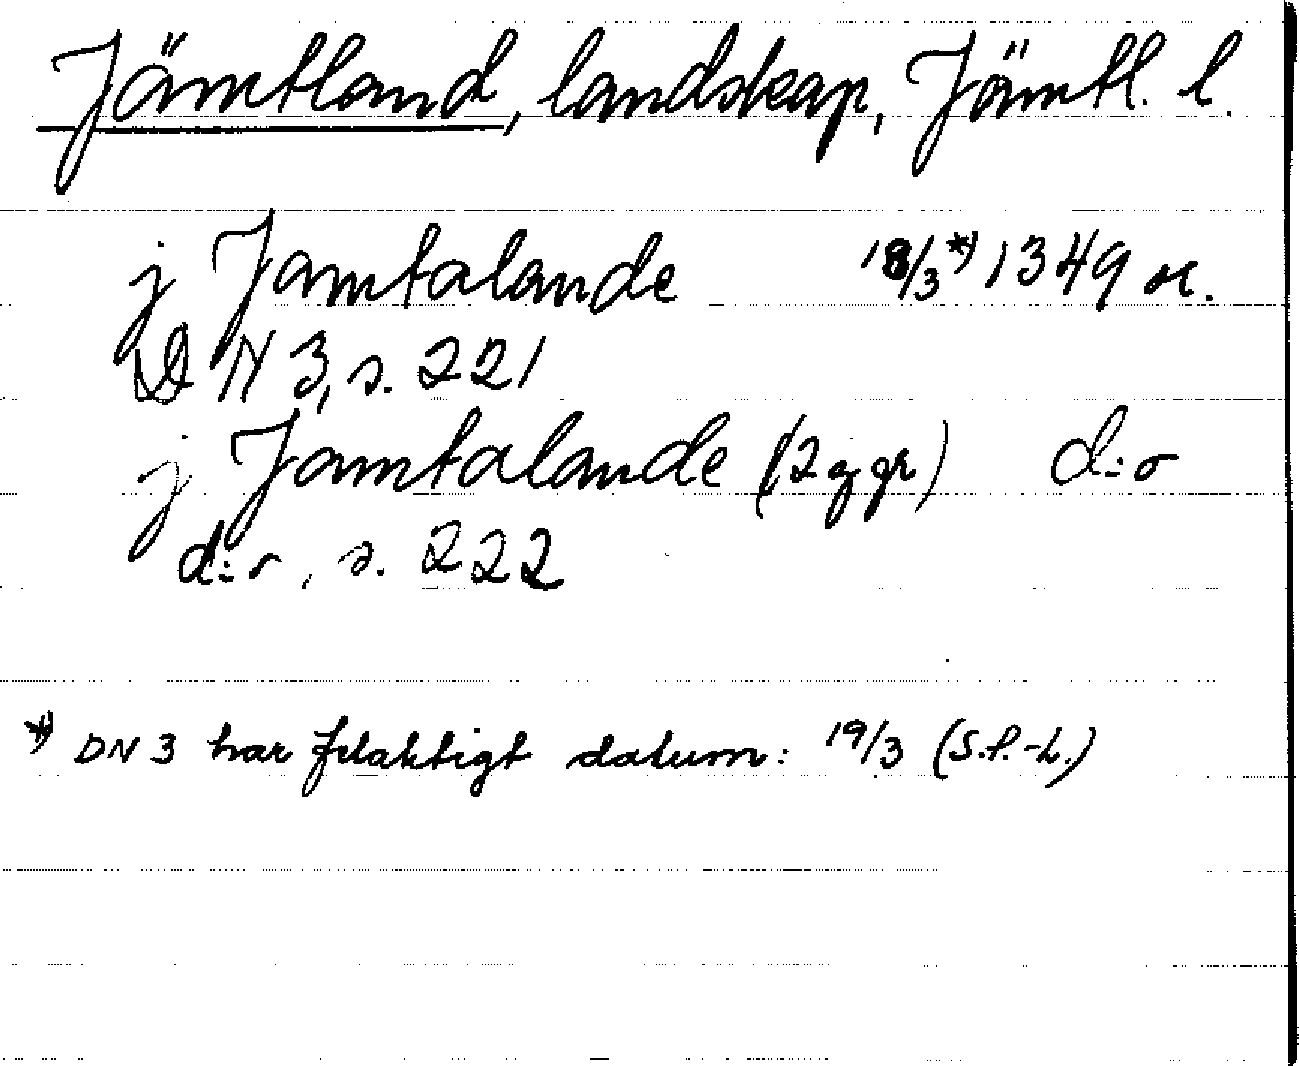 Jämtland, landskap, Jämtl. l.
j Jamtalande 18/3*) 1349 or.
DN 3, s. 221
j Jamtalande (2 ggr) d:o
d:o, s. 222
*) DN 3 har felaktigt datum: 19/3 (S.P.-L.)